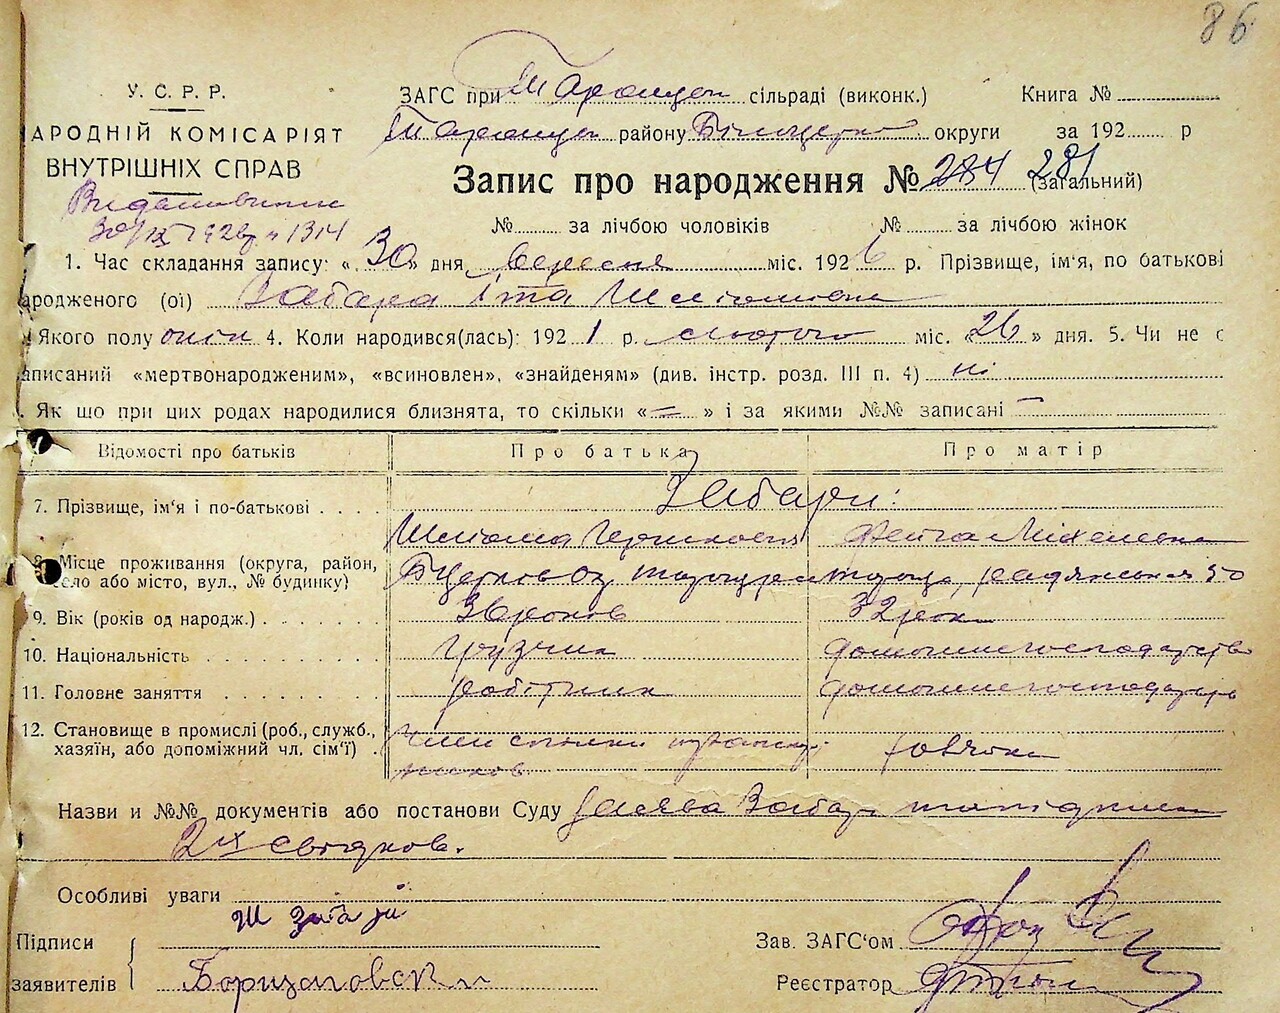 86
У. С. Р. Р.
АРОДНІЙ КОМІСАРІЯТ
ВНУТРІШНІХ СПРАВ
ЗАГС при Таращан сільраді (виконк.) Книга №
Таращан району Білоцерк округи за 192 р
Запис про народження № 284 281 (загальний)
30/IX 1926 1314
№ за лічбою чоловіків № за лічбою жінок
1. Час складання запису: « 30 » дня вересня міс. 1926 р. Прізвище, ім'я, по батькові
ародженого (ої) Забара Іта Шліомівна
Якого полу 4. Коли народився(лась): 1921 р. лютого міс. « 26 » дня. 5. Чи не с
аписаний «мертвонародженим», «всиновлен», «знайденям» (див. інстр. розд. III п. 4) ні
. Як що при цих родах народилися близнята, то скільки « — » і за якими №№ записані —
Відомості про батьків Про батька Про матір
7. Прізвище, ім'я і по-батькові . . . . Забари:
Шліома Фейга
8. Місце проживання (округа, район,
село або місто, вул., № будинку) Бцерков ок радянська 50
9. Вік (років од народж.) . . . . . . 36 років 32 роки
10. Національність . . . . . . . . . . грузчик домашнє господарство
11. Головне заняття . . . . . . . . робітник домашнє господарство
12. Становище в промислі (роб., служб.,
хазяїн, або допоміжний чл. сім'ї) . член спілки
Назви и №№ документів або постанови Суду заява Забар та підписи
2х свідков.
Особливі уваги
Підписи Ш
заявителів
Зав. ЗАГС'ом
Реєстратор